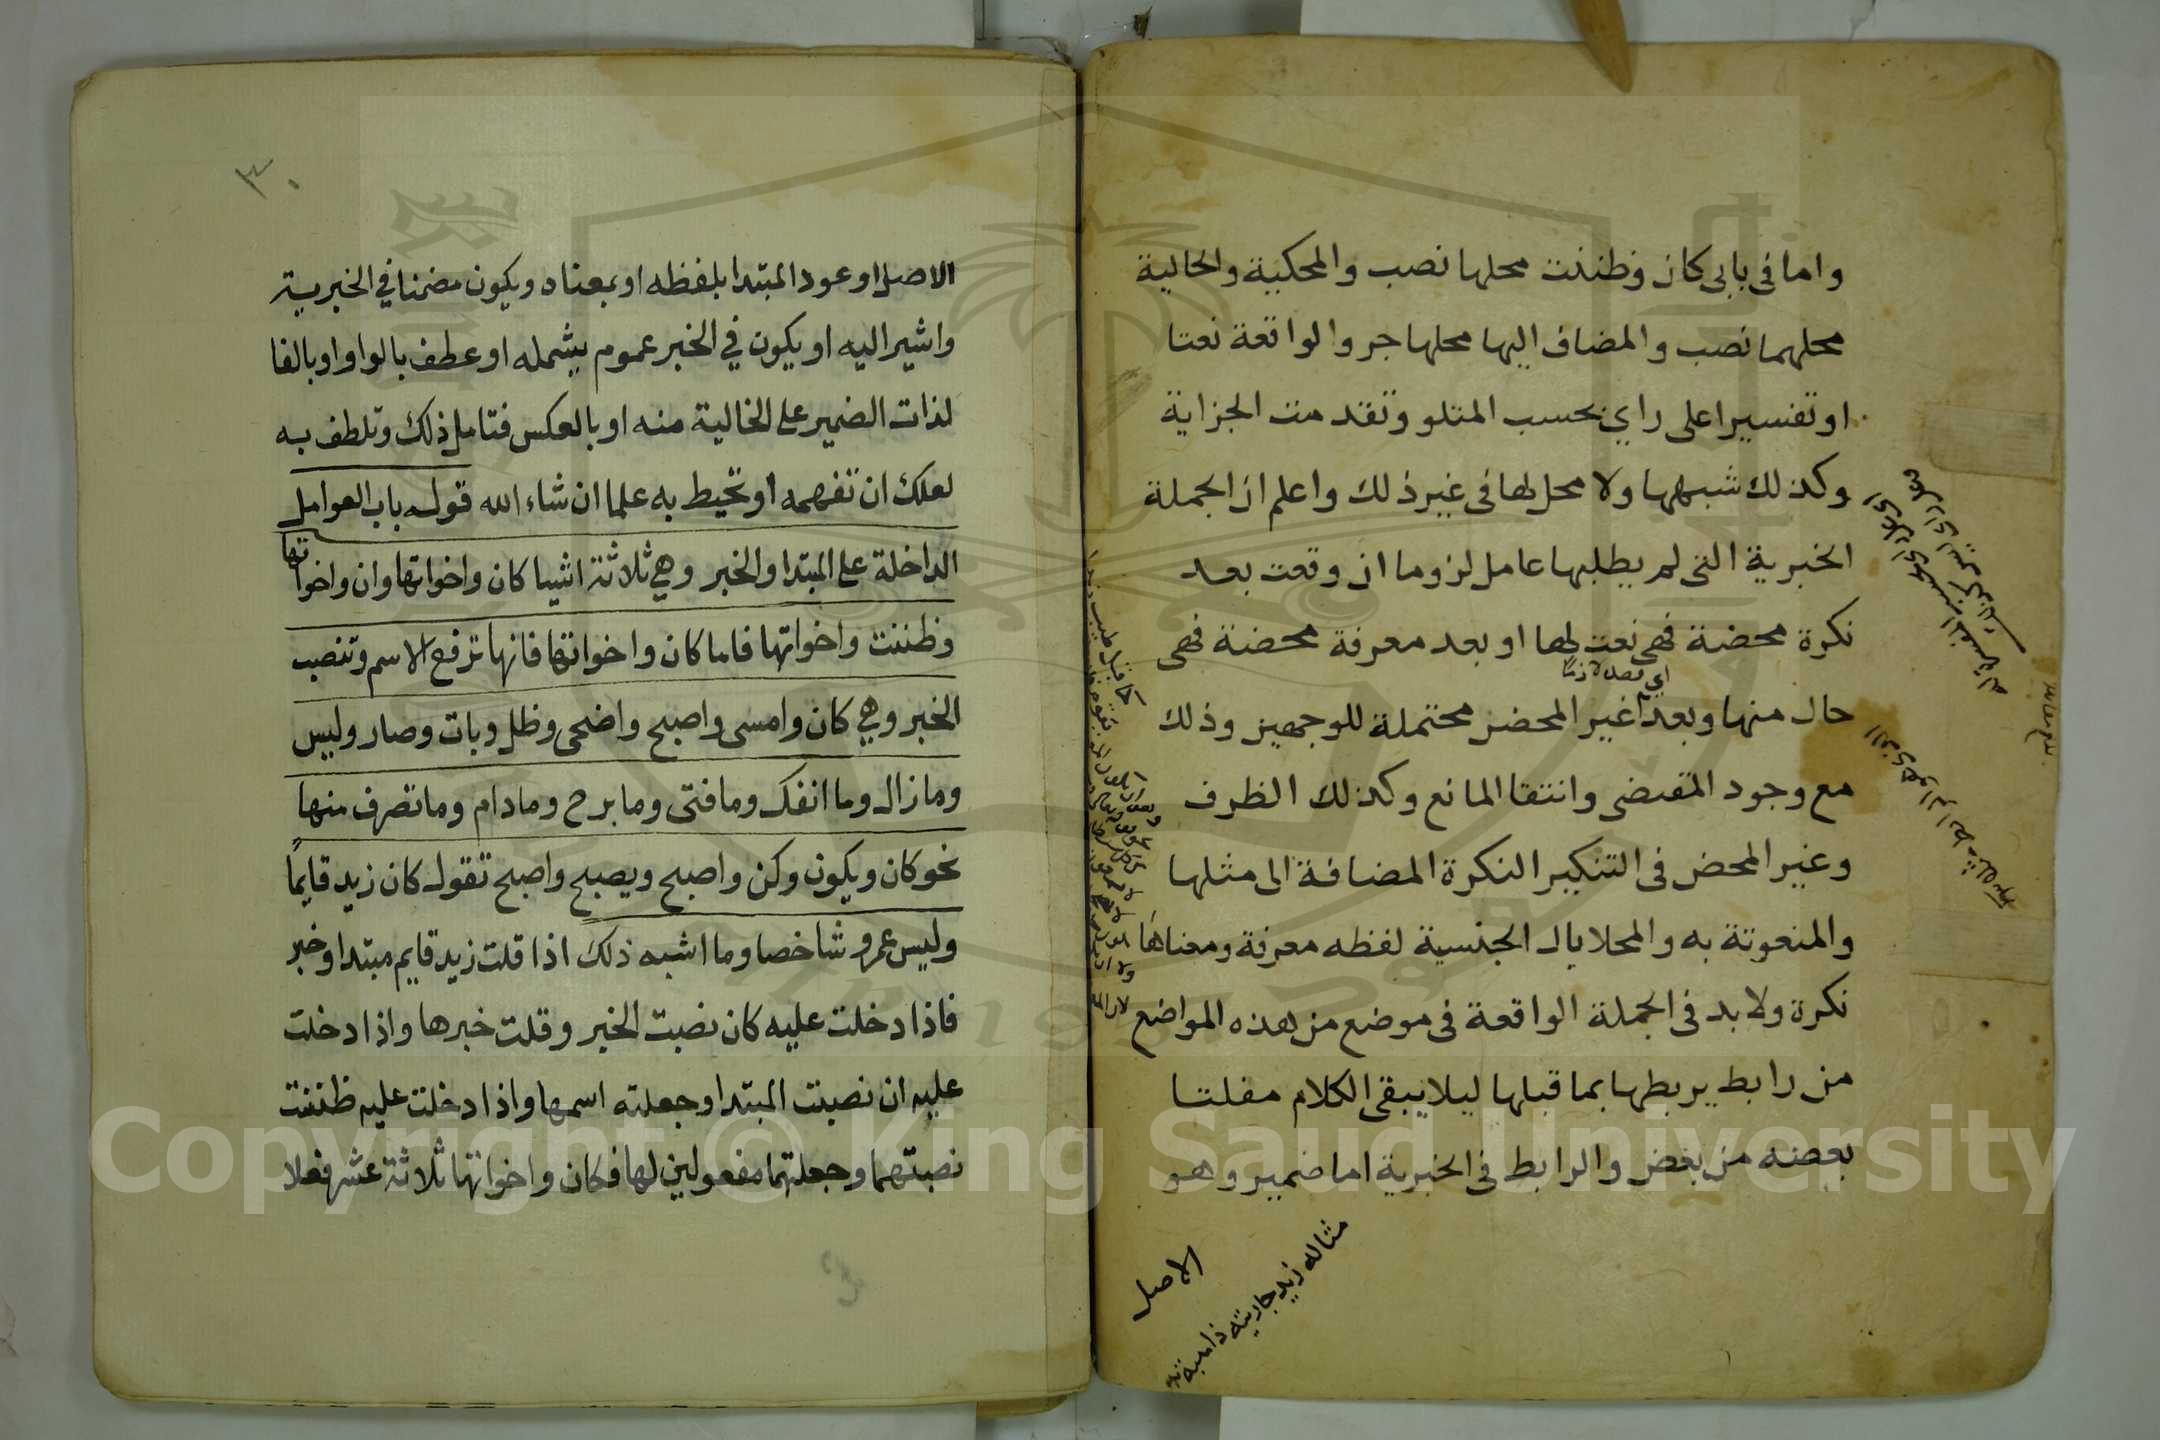 واما فى بابى كان وظننت محلها نصب والمحكية والحالية
محلهما نصب والمضاف اليها محلها جر والواقعة نعتا
او تفسيرا على راي بحسب المتلو وتقدمت الجزاية
وكذلك شبهها ولا محل لها فى غير ذلك واعلم ان الجملة
الخبرية التى لم يطلبها عامل لزوما ان وقعت بعد
نكرة محضة فهى نعت لها او بعد معرفة محضة فهى
حال منها وبعد غير المحض محتملة للوجهين وذلك
مع وجود المقتضى وانتفا المانع وكذلك الظرف
وغير المحض فى التنكير النكرة المضافة الى مثلها
والمنعوتة به والمحلا بال الجنسية لفظه معرفة ومعناها
نكرة ولا بد فى الجملة الواقعة فى موضع من هذه المواضع
من رابط يربطها بما قبلها ليلا يبقى الكلام مفلتا
بعضه من بعض والرابط فى الخبرية اما ضمير وهو
الاصل
مثاله زيد جاريته ذاهبة
٣٠
الاصل او عود المبتدا بلفظه او بمعناه ويكون مضمنا في الخبرية
واشير اليه او يكون في الخبر عموم يشمله او عطف بالواو او بالفا
لذات الضمير على الخالية منه او بالعكس فتامل ذلك وتلطف به
لعلك ان تفهمه او تحيط به علما ان شاء الله قوله باب العوامل
الداخلة على المبتدا والخبر وهي ثلاثة اشيا كان واخواتها وان واخواتها
وظننت واخواتها فاما كان واخواتها فانها ترفع الاسم وتنصب
الخبر وهي كان وامسى واصبح واضحى وظل وبات وصار وليس
وما زال وما انفك وما فتى وما برح وما دام وما تصرف منها
نحو كان ويكون وكن واصبح ويصبح واصبح تقول كان زيد قايمًا
وليس عمرو شاخصا وما اشبه ذلك اذا قلت زيد قايم مبتدا وخبر
فاذا دخلت عليه كان نصبت الخبر وقلت خبرها واذا دخلت
عليه ان نصبت المبتدا وجعلته اسمها واذا دخلت عليه ظننت
نصبتهما وجعلتهما مفعولين لها فكان واخواتها ثلاثة عشر فعلا
Copyright © King Saud University